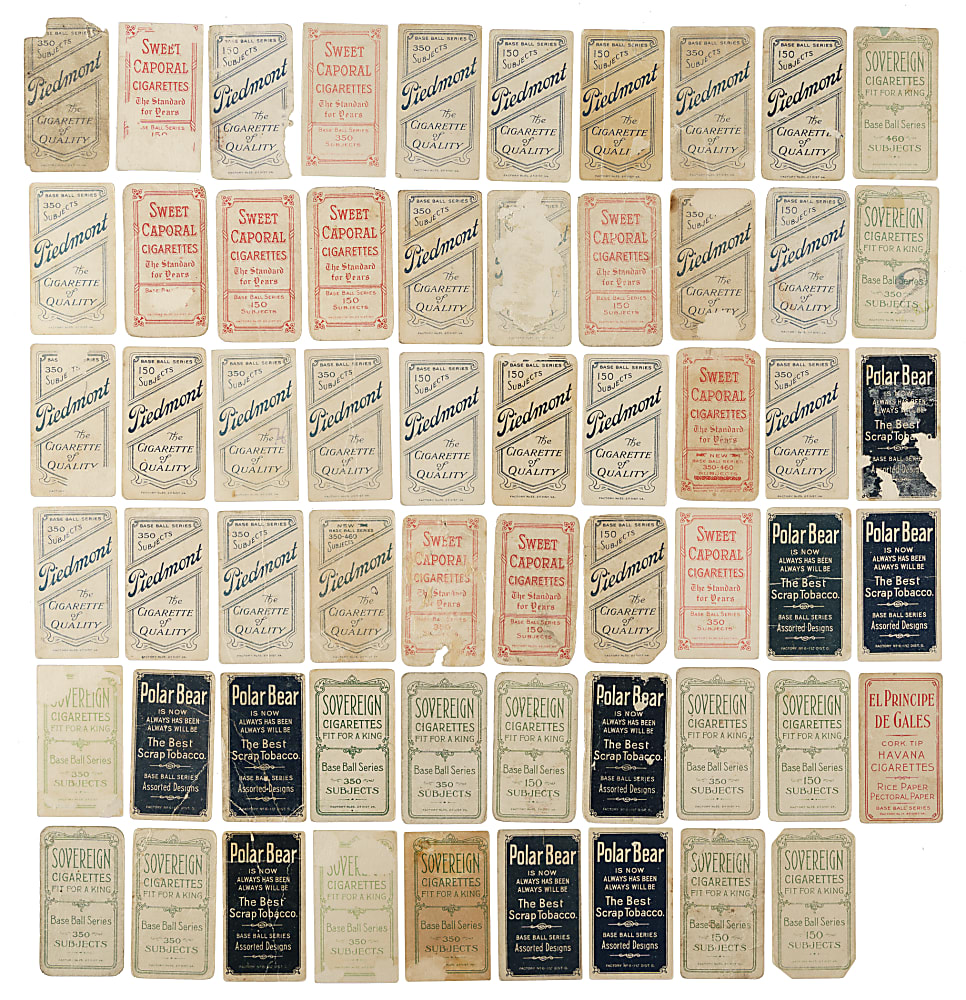 350 SUBJECTS
Piedmont
The
CIGARETTE
of
QUALITY
SWEET
CAPORAL
CIGARETTES
The Standard
for Years
BASE BALL SERIES
150 SUBJECTS
Piedmont
The
CIGARETTE
of
QUALITY
SWEET
CAPORAL
CIGARETTES
The Standard
for Years
BASE BALL SERIES
350
SUBJECTS
BASE BALL SERIES
350 SUBJECTS
Piedmont
The
CIGARETTE
of
QUALITY
BASE BALL SERIES
150 SUBJECTS
Piedmont
The
CIGARETTE
of
QUALITY
BASE BALL SERIES
150 SUBJECTS
Piedmont
The
CIGARETTE
of
QUALI
BASE BALL SERIES
350 SUBJECTS
Piedmont
The
CIGARETTE
of
QUALITY
BASE BALL SERIES
150 SUBJECTS
Piedmont
The
CIGARETTE
of
QUALITY
SOVEREIGN
CIGARETTES
FIT FOR A KING
Base Ball Series
460
SUBJECTS
BASE BALL SERIES
350 SUBJECTS
Piedmont
The
CIGARETTE
of
QUALITY
SWEET
CAPORAL
CIGARETTES
The Standard
for Years
SWEET
CAPORAL
CIGARETTES
The Standard
for Years
BASE BALL SERIES
150
SUBJECTS
SWEET
CAPORAL
CIGARETTES
The Standard
for Years
BASE BALL SERIES
150
SUBJECTS
BASE BALL SERIES
350 SUBJECTS
Piedmont
The
CIGARETTE
of
QUALITY
SWEET
CAPORAL
CIGARETTES
The Standard
for Years
BASE BALL SERIES
150
SUBJECTS
350
Piedmont
The
CIGARETTE
of
BASE BALL SERIES
150 SUBJECTS
Piedmont
The
CIGARETTE
of
QUALITY
SOVEREIGN
CIGARETTES
FIT FOR A KING
Base Ball Series
350
SUBJECTS
350
Piedmont
The
CIGARETTE
of
QUALITY
BASE BALL SERIES
150 SUBJECTS
Piedmont
The
CIGARETTE
of
QUALITY
BASE BALL SERIES
350 SUBJECTS
Piedmont
The
CIGARETTE
of
QUALITY
BASE BALL SERIES
350 SUBJECTS
Piedmont
The
CIGARETTE
of
QUALITY
BASE BALL SERIES
150 SUBJECTS
Piedmont
The
CIGARETTE
of
QUALITY
BASE BALL SERIES
150 SUBJECTS
Piedmont
The
CIGARETTE
of
QUALITY
BASE BALL SERIES
150 SUBJECTS
Piedmont
The
CIGARETTE
of
QUALITY
SWEET
CAPORAL
CIGARETTES
The Standard
for Years
NEW
BASE BALL SERIES
350-460
SUBJECTS
BASE BALL SERIES
350 SUBJECTS
Piedmont
The
CIGARETTE
of
QUALITY
Polar Bear
IS NOW
The Best
Assorted Designs
BASE BALL SERIES
350 SUBJECTS
Piedmont
The
CIGARETTE
of
QUALITY
BASE BALL SERIES
350 SUBJECTS
Piedmont
The
CIGARETTE
of
QUALITY
BASE BALL SERIES
350 SUBJECTS
Piedmont
The
CIGARETTE
of
QUALITY
NEW
BASE BALL SERIES
350-460
SUBJECTS
Piedmont
The
CIGARETTE
of
QUALITY
SWEET
CAPORAL
CIGARETTES
The Standard
for Years
SWEET
CAPORAL
CIGARETTES
The Standard
for Years
BASE BALL SERIES
150
SUBJECTS
BASE BALL SERIES
350 SUBJECTS
Piedmont
The
CIGARETTE
of
QUALITY
SWEET
CAPORAL
CIGARETTES
The Standard
for Years
BASE BALL SERIES
350
SUBJECTS
Polar Bear
IS NOW
ALWAYS HAS BEEN
ALWAYS WILL BE
The Best
Scrap Tobacco.
BASE BALL SERIES
Assorted Designs
FACTORY Nº 6-1ST DIST. O.
Polar Bear
IS NOW
ALWAYS HAS BEEN
ALWAYS WILL BE
The Best
Scrap Tobacco.
BASE BALL SERIES
Assorted Designs
FACTORY Nº 6-1ST DIST. O.
CIGARETTES
FIT FOR A KING
Base Ball Series
350
SUBJECTS
Polar Bear
IS NOW
ALWAYS HAS BEEN
ALWAYS WILL BE
The Best
Scrap Tobacco.
BASE BALL SERIES
Assorted Designs
Polar Bear
IS NOW
ALWAYS HAS BEEN
ALWAYS WILL BE
The Best
Scrap Tobacco.
BASE BALL SERIES
Assorted Designs
SOVEREIGN
CIGARETTES
FIT FOR A KING
Base Ball Series
350
SUBJECTS
SOVEREIGN
CIGARETTES
FIT FOR A KING
Base Ball Series
350
SUBJECTS
SOVEREIGN
CIGARETTES
FIT FOR A KING
Base Ball Series
150
SUBJECTS
Polar Bear
IS NOW
ALWAYS HAS BEEN
ALWAYS WILL BE
The Best
Scrap Tobacco.
BASE BALL SERIES
Assorted Designs
SOVEREIGN
CIGARETTES
FIT FOR A KING
Base Ball Series
350
SUBJECTS
SOVEREIGN
CIGARETTES
FIT FOR A KING
Base Ball Series
150
SUBJECTS
EL PRINCIPE
DE GALES
CORK TIP
HAVANA
CIGARETTES
RICE PAPER
PECTORAL PAPER
BASE BALL SERIES
SOVEREIGN
CIGARETTES
FIT FOR A KING
Base Ball Series
350
SUBJECTS
SOVEREIGN
CIGARETTES
FIT FOR A KING
Base Ball Series
350
SUBJECTS
Polar Bear
IS NOW
ALWAYS HAS BEEN
ALWAYS WILL BE
The Best
Scrap Tobacco.
BASE BALL SERIES
Assorted Designs
CIGARETTES
FIT FOR A KING
Base Ball Series
350
SUBJECTS
SOVEREIGN
CIGARETTES
FIT FOR A KING
Base Ball Series
350
SUBJECTS
Polar Bear
IS NOW
ALWAYS HAS BEEN
ALWAYS WILL BE
The Best
Scrap Tobacco.
BASE BALL SERIES
Assorted Designs
FACTORY Nº 6-1ST DIST. O.
Polar Bear
IS NOW
ALWAYS HAS BEEN
ALWAYS WILL BE
The Best
Scrap Tobacco.
BASE BALL SERIES
Assorted Designs
FACTORY Nº 6-1ST DIST. O.
SOVEREIGN
CIGARETTES
FIT FOR A KING
Base Ball Series
150
SUBJECTS
SOVEREIGN
CIGARETTES
FIT FOR A KING
Base Ball Series
150
SUBJECTS